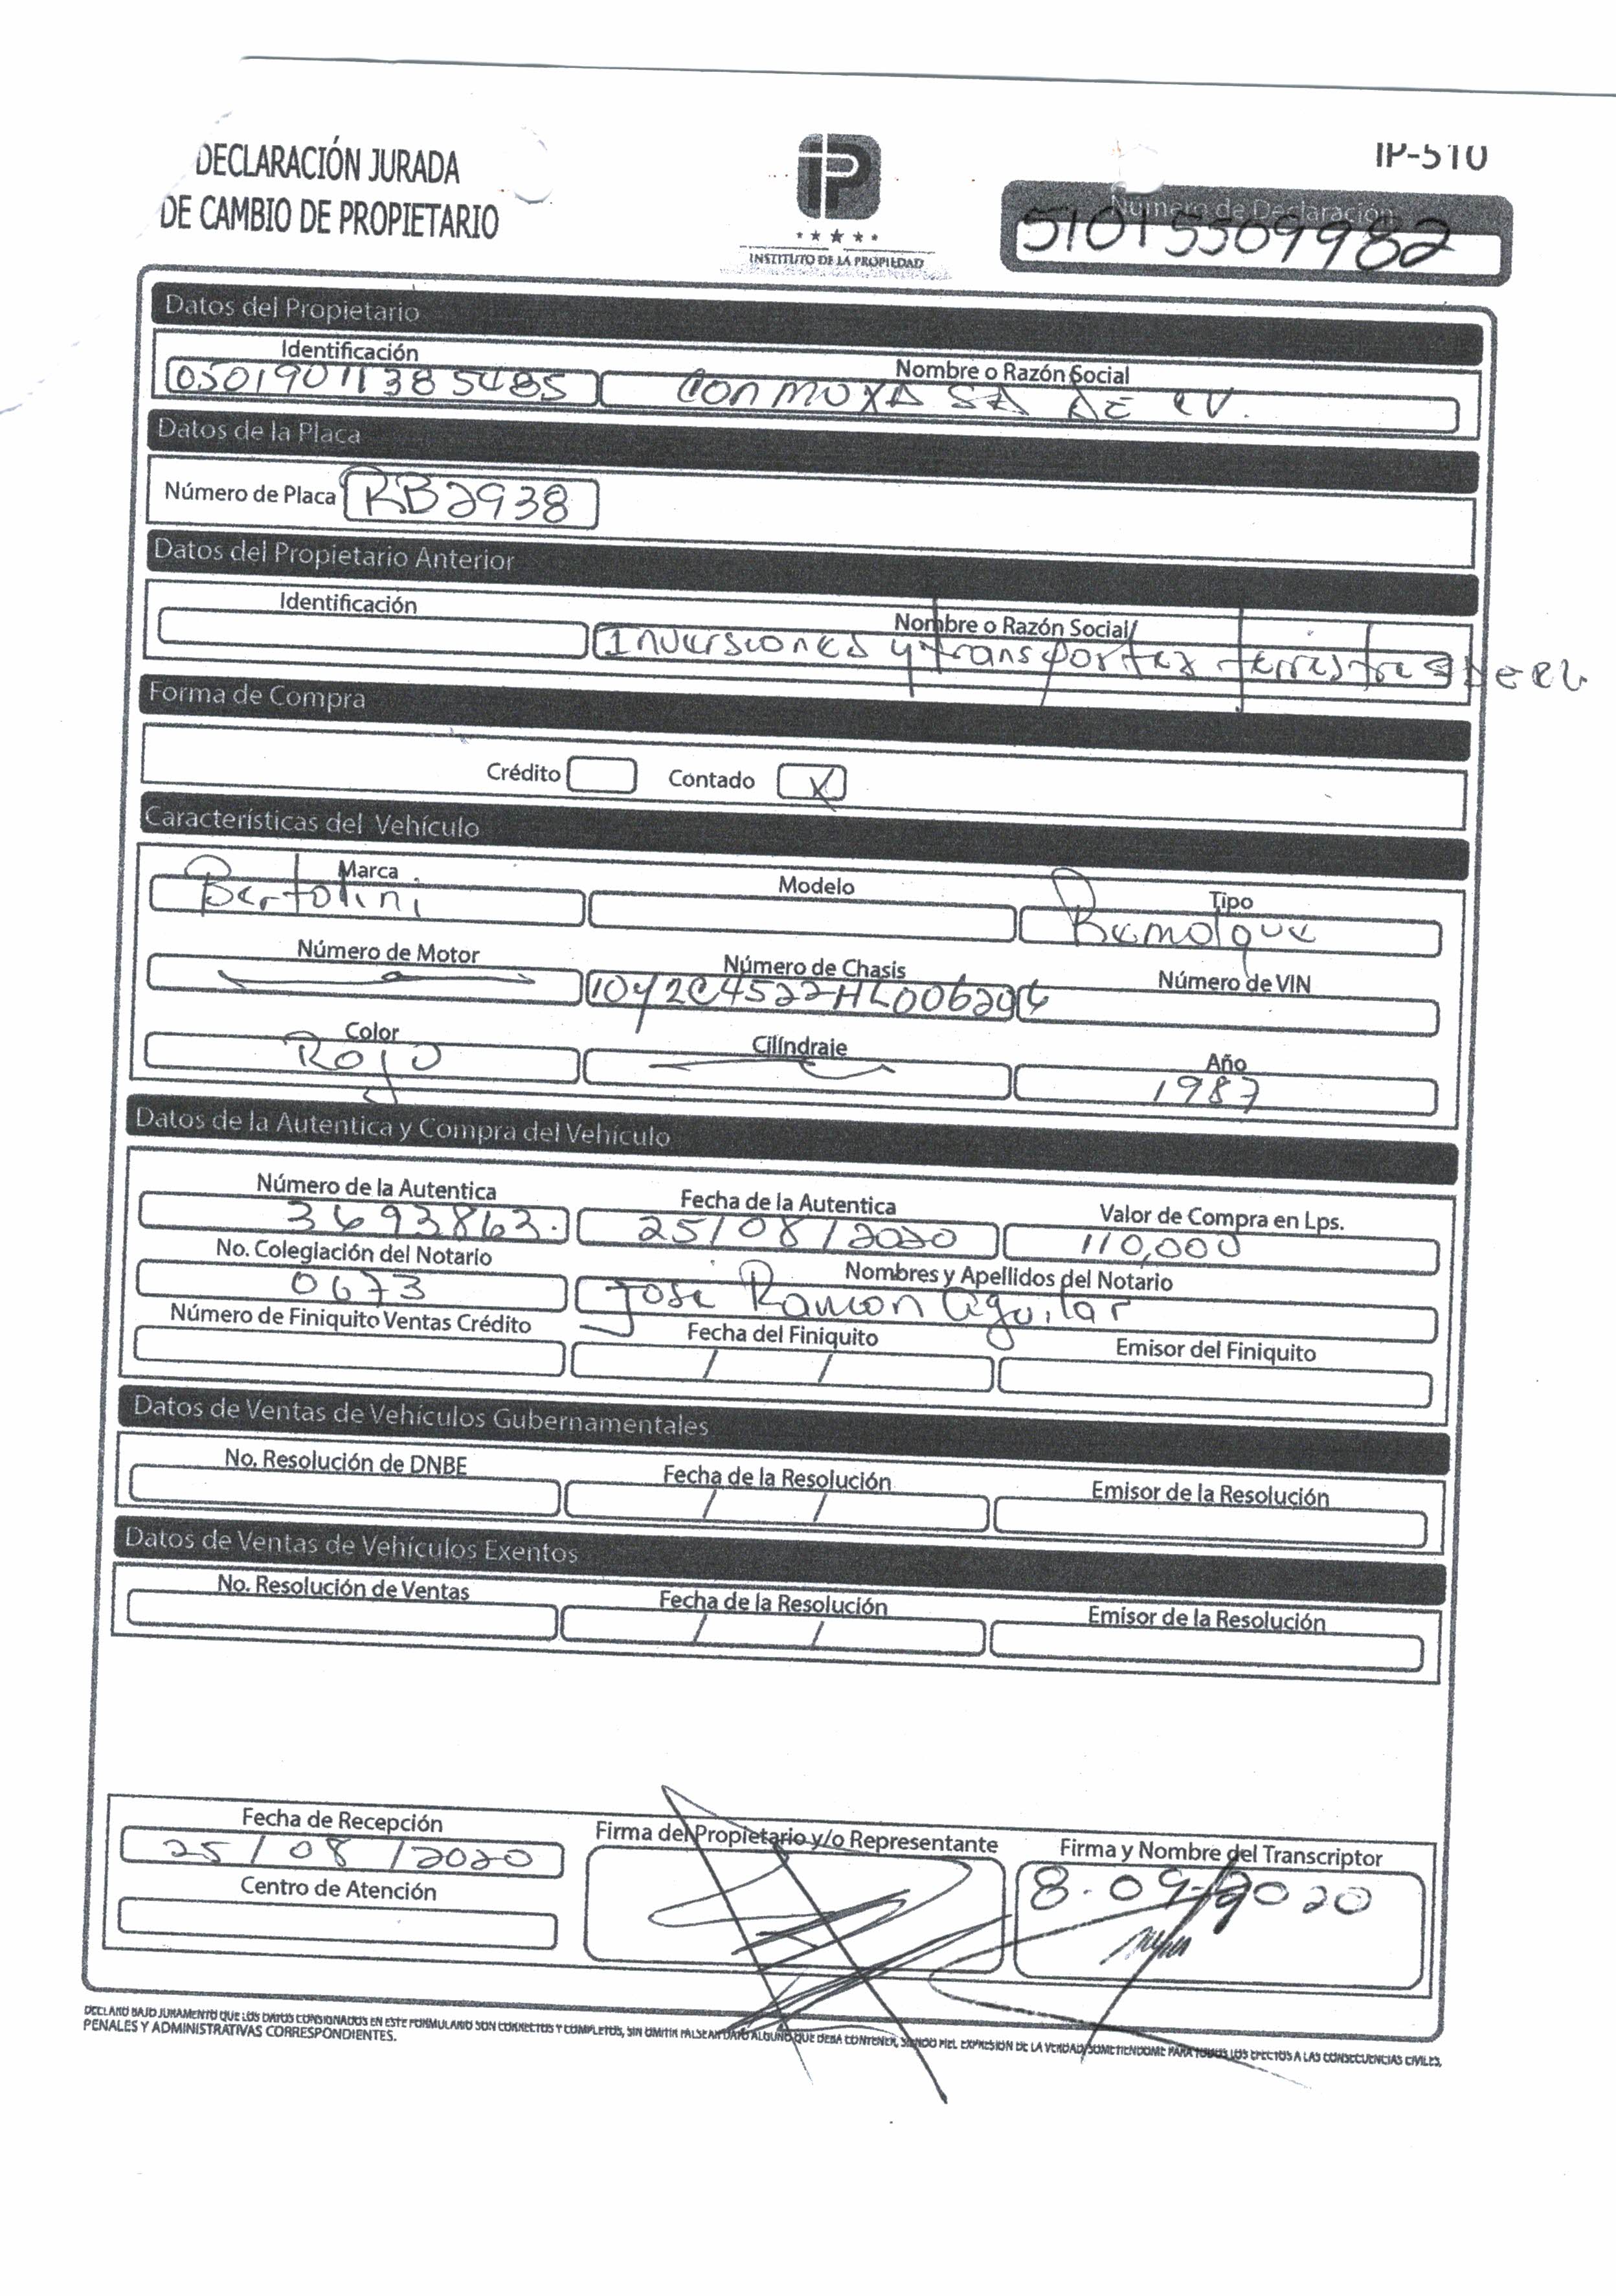 DECLARACIÓN JURADA
DE CAMBIO DE PROPIETARIO
IP
INSTITUTO DE LA PROPIEDAD
IP-510
Número de Declaración
51015309982
Datos del Propietario
Identificación
Nombre o Razón Social
05019011385485
CONMOXA SA DE CV.
Datos de la Placa
Número de Placa RB2938
Datos del Propietario Anterior
Identificación
Nombre o Razón Social
Inversiones y transportes terrestres
Forma de Compra
Crédito Contado X
Características del Vehículo
Marca Modelo Tipo
Bertolini Remolque
Número de Motor Número de Chasis Número de VIN
Color Cilíndraje Año
Rojo 1987
Datos de la Autentica y Compra del Vehículo
Número de la Autentica Fecha de la Autentica Valor de Compra en Lps.
3693863. 25/08/2020 110,000
No. Colegiación del Notario Nombres y Apellidos del Notario
0673 Jose Ramon Aguilar
Número de Finiquito Ventas Crédito Fecha del Finiquito Emisor del Finiquito
/ /
Datos de Ventas de Vehículos Gubernamentales
No. Resolución de DNBE Fecha de la Resolución Emisor de la Resolución
/ /
Datos de Ventas de Vehículos Exentos
No. Resolución de Ventas Fecha de la Resolución Emisor de la Resolución
/ /
Fecha de Recepción Firma del Propietario y/o Representante Firma y Nombre del Transcriptor
25/08/2020 8-09-2020
Centro de Atención
DECLARO BAJO JURAMENTO QUE LOS DATOS CONSIGNADOS EN ESTE FORMULARIO SON CORRECTOS Y COMPLETOS, SIN OMITIR FALSEAR DATO ALGUNO QUE DEBA CONTENER, SIENDO FIEL EXPRESION DE LA VERDAD, SOMETIENDOME PARA TODOS LOS EFECTOS A LAS CONSECUENCIAS CIVILES,
PENALES Y ADMINISTRATIVAS CORRESPONDIENTES.